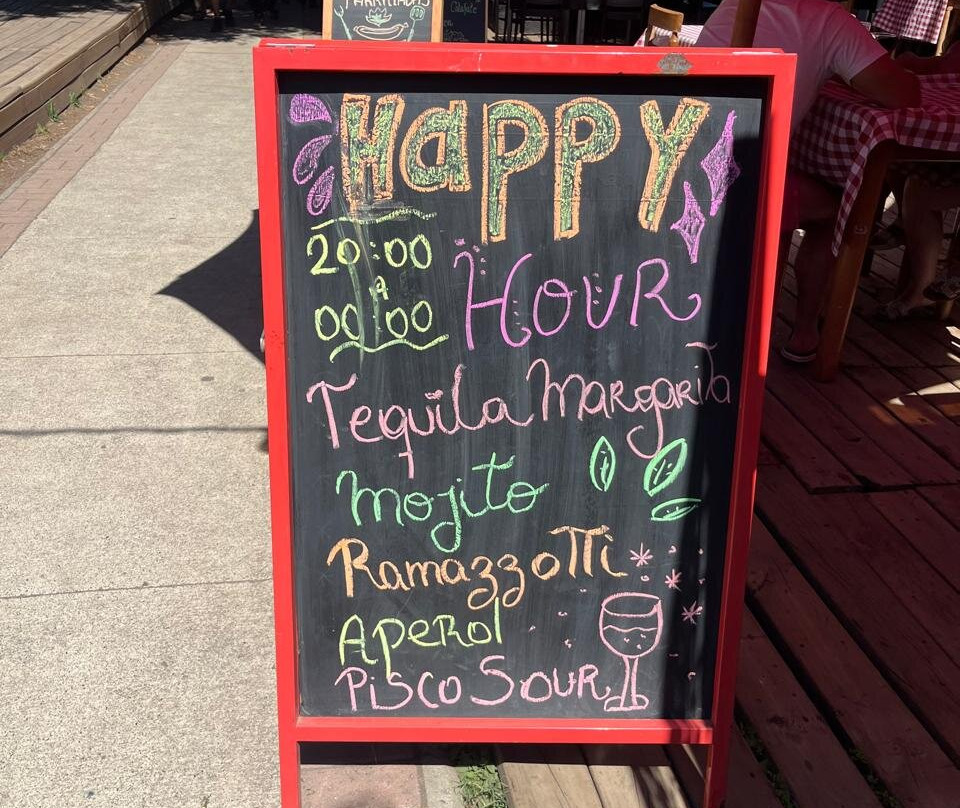 PARRILLADAS
HAPPY
20:00
A
00:00
HOUR
Tequila Margarita
Mojito
Ramazzotti
Aperol
Pisco Sour